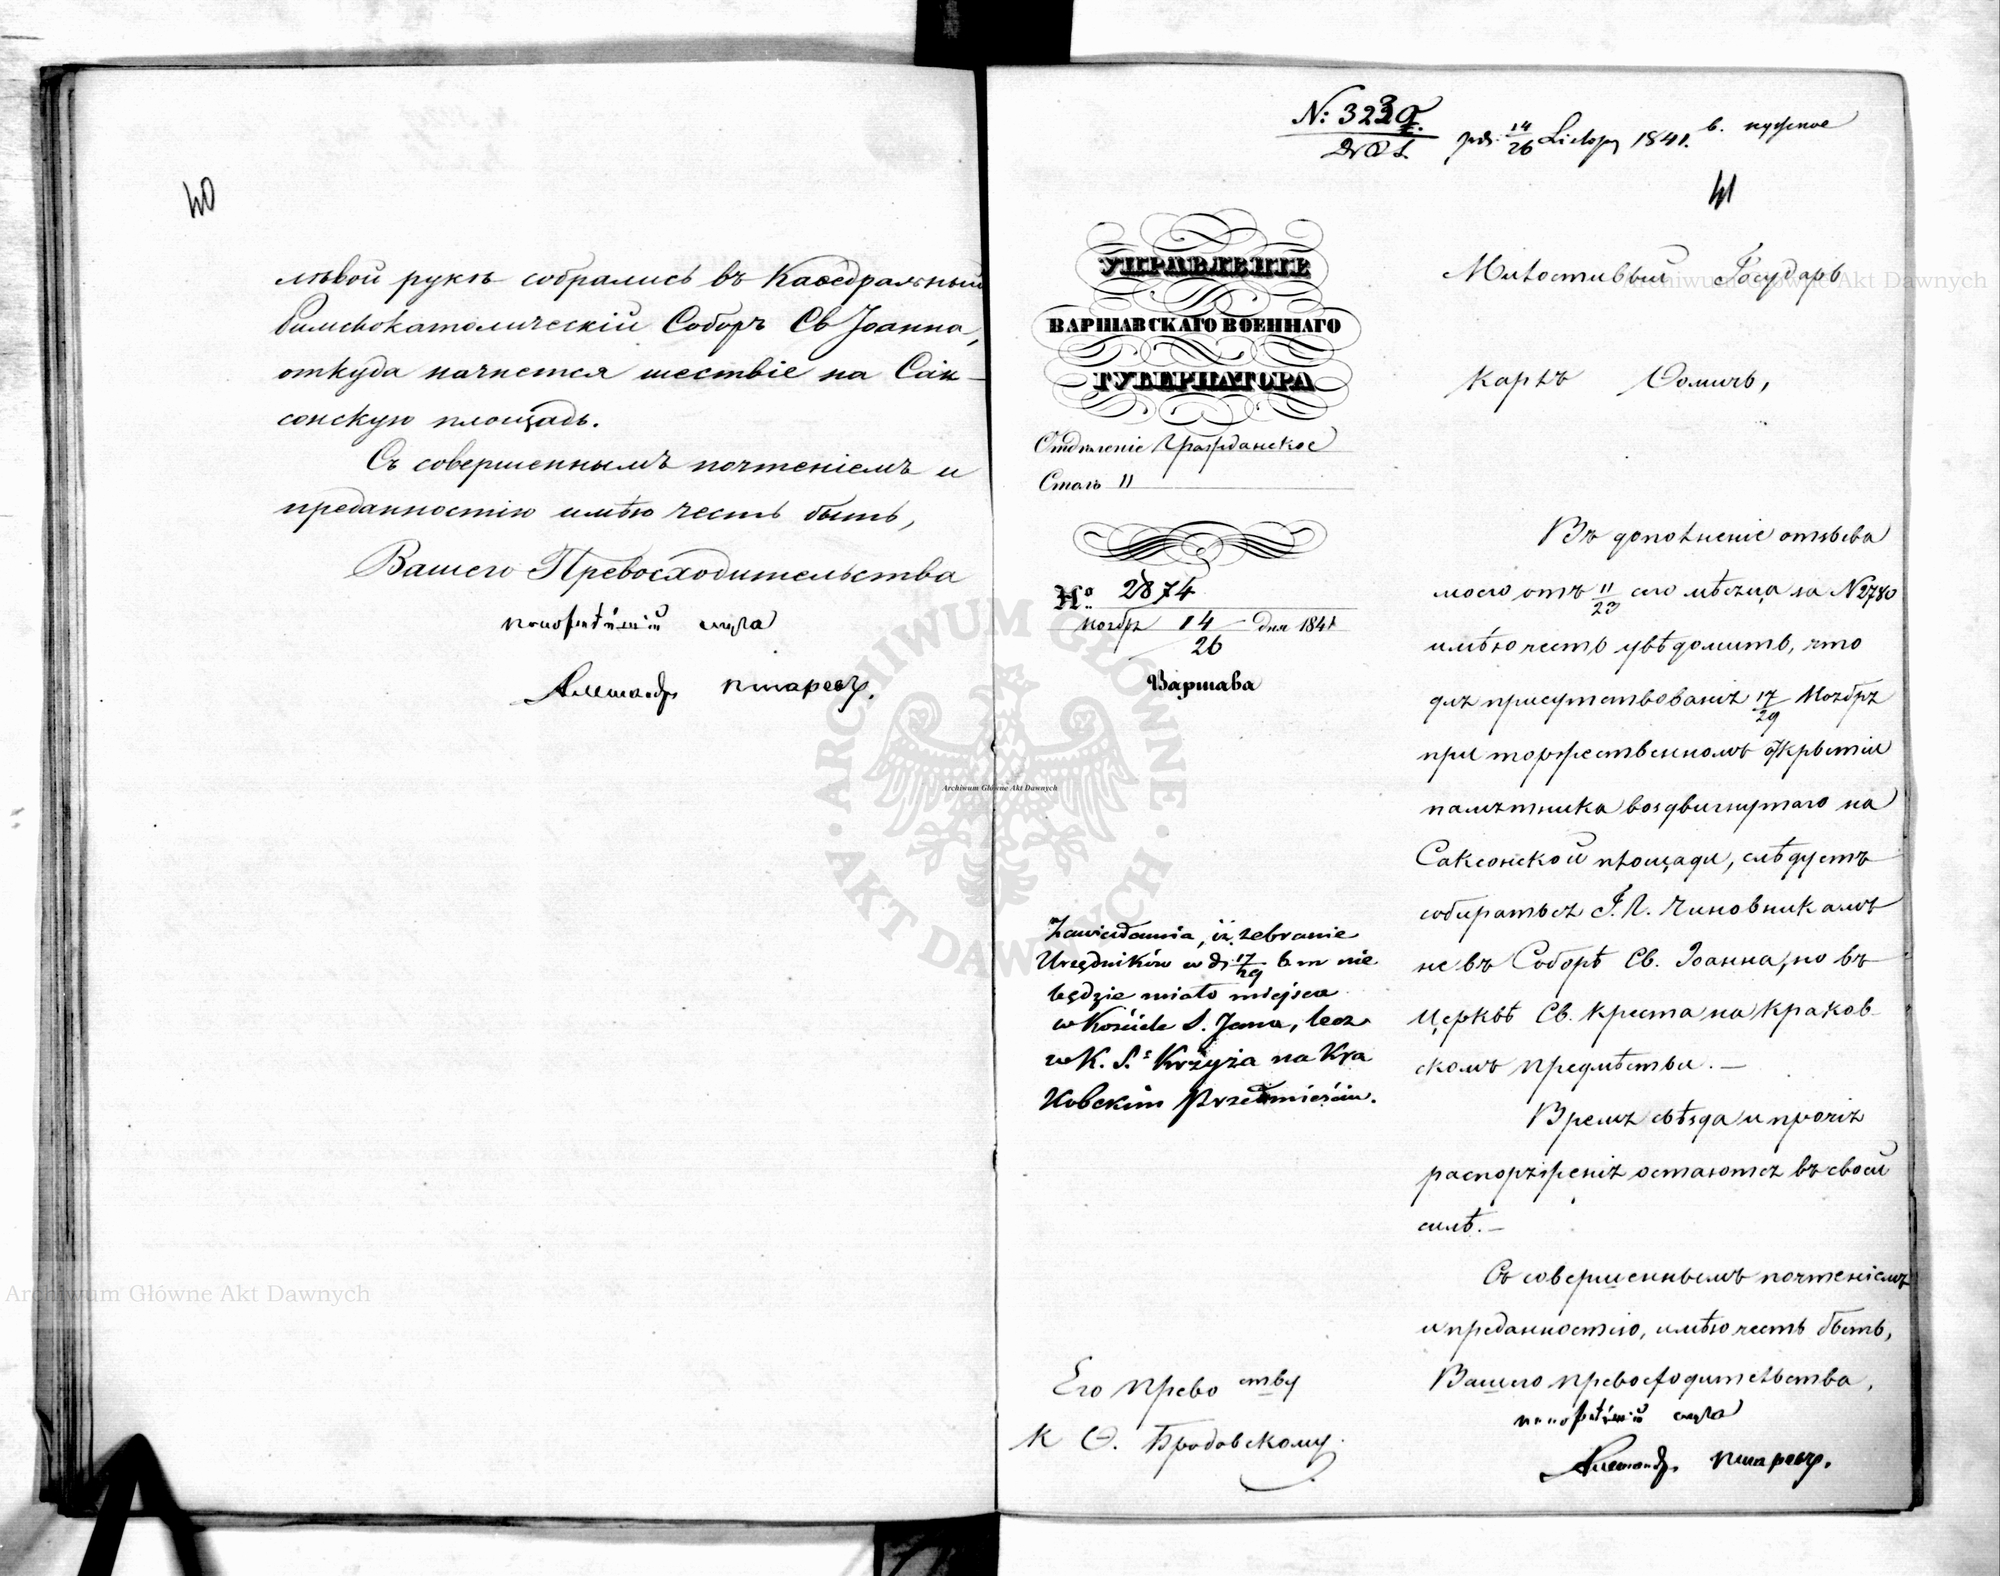 40
лѣвой рукѣ собрались въ Каѳедральный
Римскокатолическій Соборъ Св Іоанна,
откуда начнется шествіе на Сак-
сонскую площадь.
Съ совершеннымъ почтеніемъ и
преданностію имѣю честь быть,
Вашего Превосходительства
покорнѣйшій слуга
Александръ Писаревъ.
N: 3239
14/26 Listop 1841.
41
УПРАВЛЕНІЕ
ВАРШАВСКАГО ВОЕННАГО
ГУБЕРНАТОРА
Отдѣленіе Гражданское
Столъ II
No. 2874
Ноябр 14/26 дня 1841
Варшава
Zawiadamia, iż zebranie
Urzędników w d. 17/29 b m nie
będzie miało miejsca
w Kościele S. Jana, lecz
w K. S. Krzyża na Kra
kowskim Przedmieściu.
Его Превоству
К Ѳ. Бродовскому.
Милостивый Государь
Карлъ Ѳомичъ,
Въ дополненіе отзыва
моего отъ 11/23 сего мѣсяца за N 2780
имѣю честь увѣдомить, что
для присутствованія 17/29 Ноября
при торжественномъ открытіи
памятника воздвигнутаго на
Саксонской площади, слѣдуетъ
собираться Г. г. Чиновникамъ
не въ Соборѣ Св. Іоанна, но въ
Церквѣ Св. Креста на Краков-
скомъ предмѣстьи. —
Время съѣзда и прочія
распоряженія остаются въ своей
силѣ. —
Съ совершеннымъ почтеніемъ
и преданностію, имѣю честь быть,
Вашего Превосходительства,
покорнѣйшій слуга
Александръ Писаревъ.
ARCHIWUM GŁÓWNE AKT DAWNYCH
Archiwum Główne Akt Dawnych
Archiwum Główne Akt Dawnych
Archiwum Główne Akt Dawnych